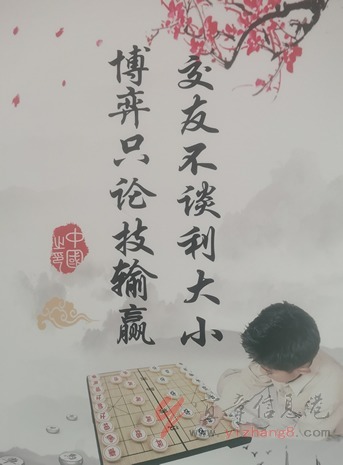 交友不谈利大小
博弈只论技输赢
中國之夢
www.yizhang8.com